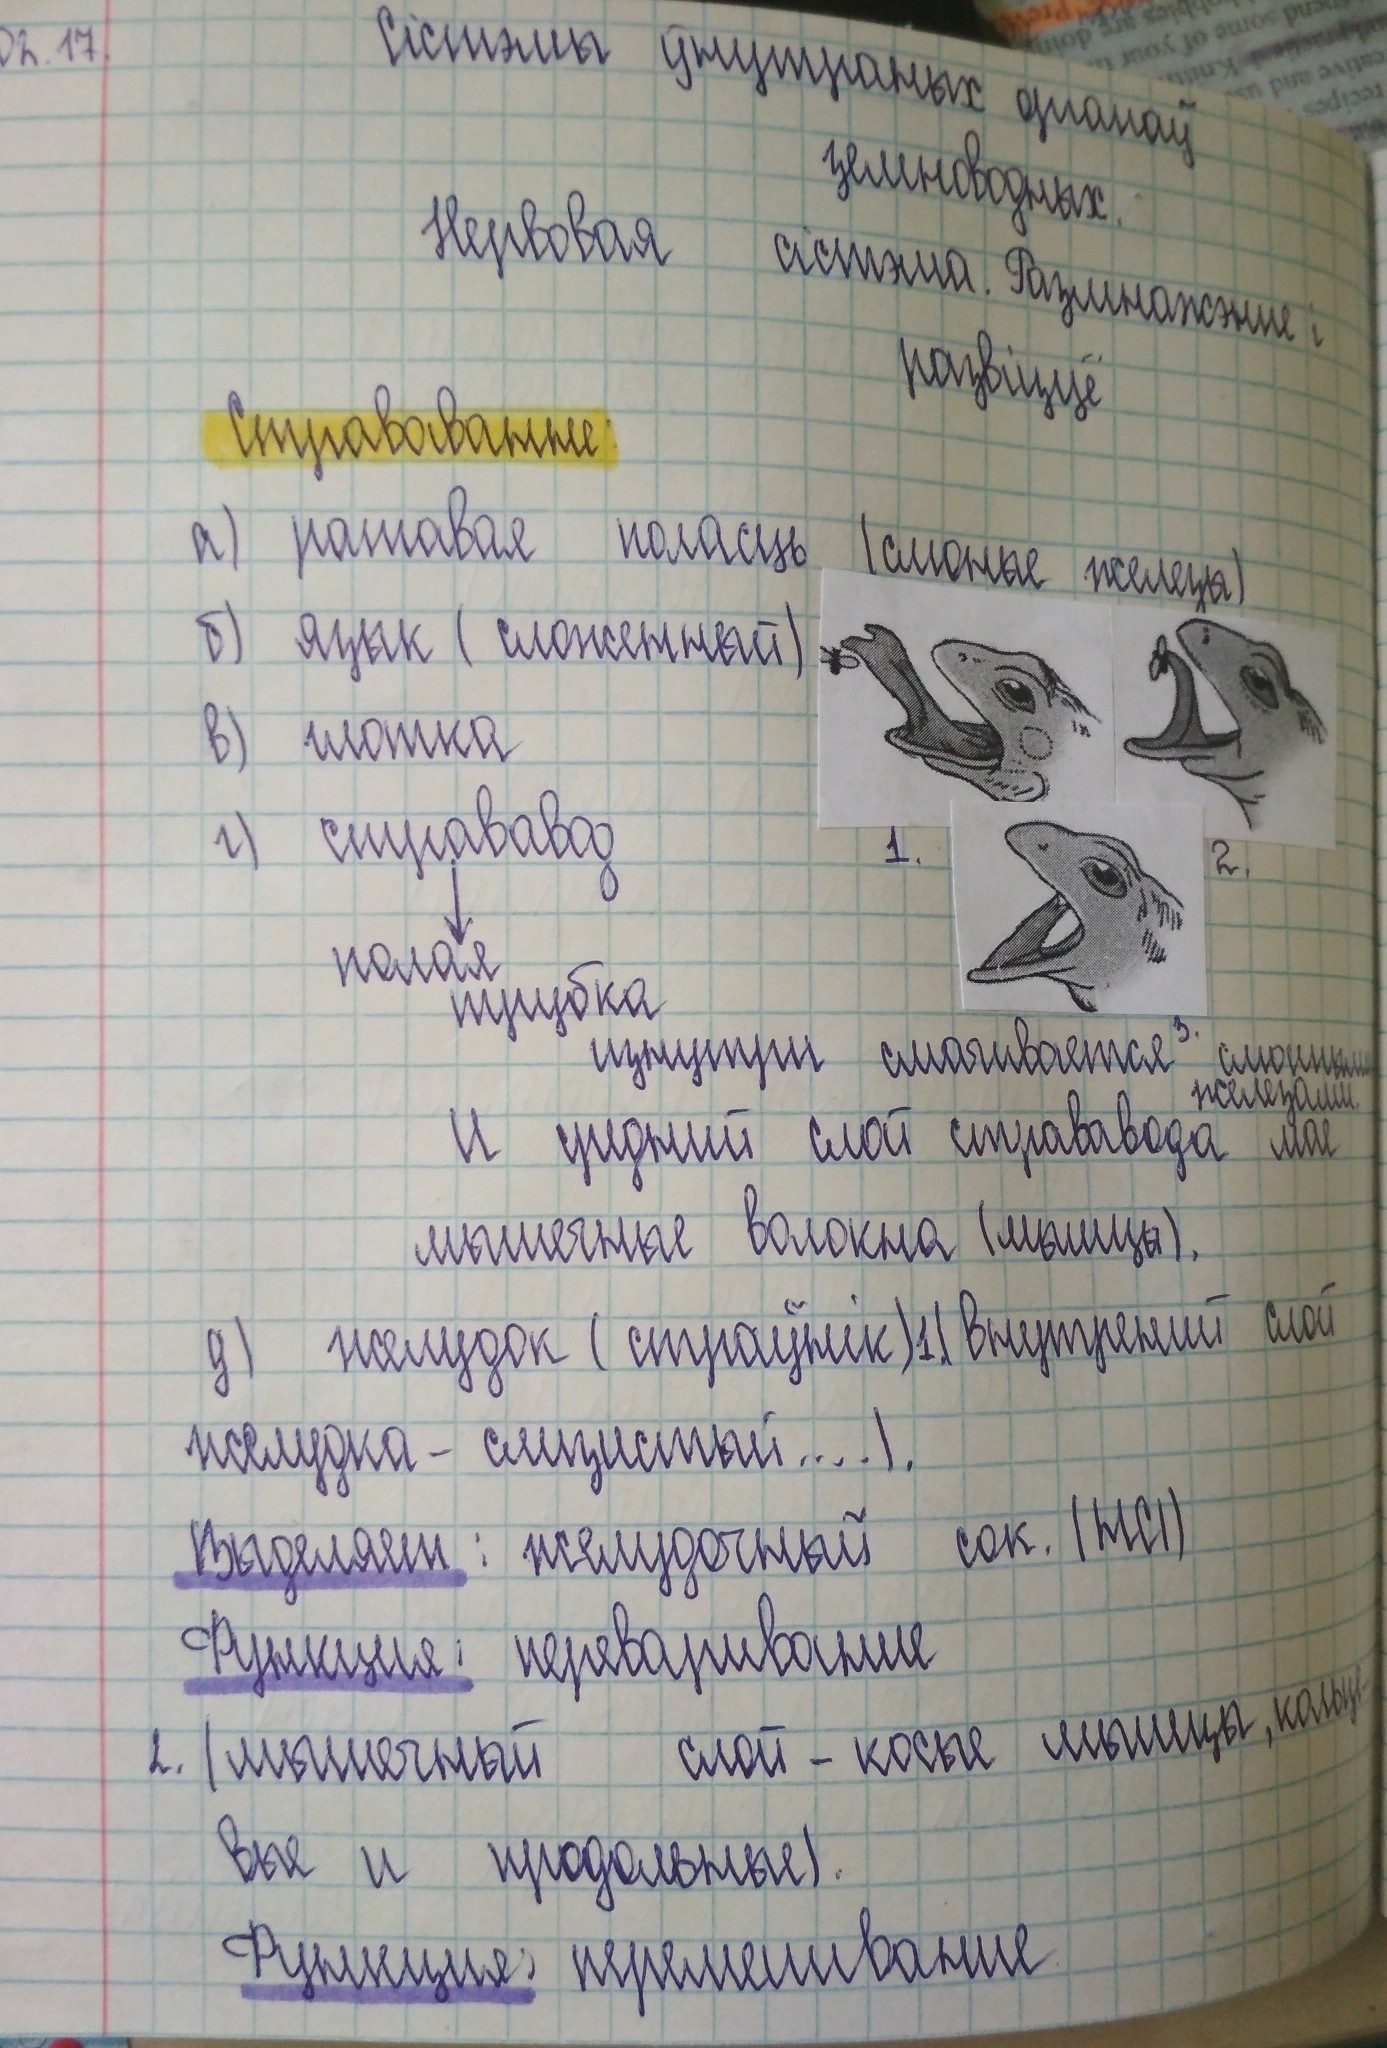 02.17.
Сістэмы ўнутраных органаў
земноводных.
Нервовая сістэма. Размнажэние і
развіццё
Страваванне:
а) ротавая поласць (слюные железы)
б) язык (сложенный)
в) глотка
г) страввавод
полая
трубка
1. 2.
изнутри смачивается 3. слюнными
железами.
И средний слой страввавода мае
мышечные волокна (мышцы).
д) желудок (страўнік) 1.(внутрений слой
желудка - слизистый.....).
Выделяет: желудочный сок. (HCl)
Функция: переваривание
2. (мышечный слой - косые мышцы, кольце-
вые и продольные).
Функция: перемешивание